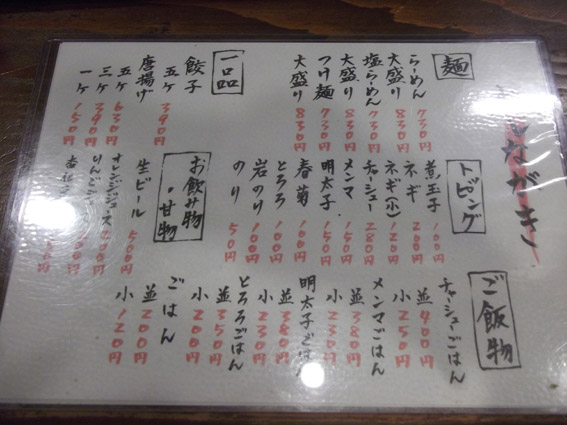 ながき
麺
らーめん 730円
大盛り 830円
塩らーめん 730円
大盛り 830円
つけ麺 730円
大盛り 830円
一品
餃子
五ケ 390円
唐揚げ
五ケ 630円
三ケ 390円
一ケ 150円
トッピング
煮玉子 100円
ネギ 200円
ネギ(小) 120円
チャーシュー 280円
メンマ 150円
明太子 150円
春菊 100円
とろろ 100円
岩のり 100円
のり 50円
お飲み物・甘物
生ビール 500円
オレンジジュース
りんごジュース
杏仁
ご飯物
チャーシューごはん
並 400円
小 250円
メンマごはん
並 380円
小 230円
明太子ごはん
並 380円
小 230円
とろろごはん
並 350円
小 200円
ごはん
並 200円
小 120円